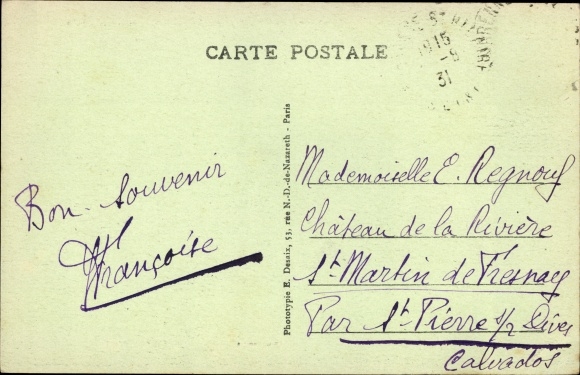 CARTE POSTALE
1915
-9
31
Bon souvenir
Françoise
Phototypie E. Desaix, 53, rue N.-D.-de-Nazareth - Paris
Mademoiselle E. Regnouf
Château de la Rivière
St Martin de Fresnay
Par St Pierre s/ Dives
Calvados